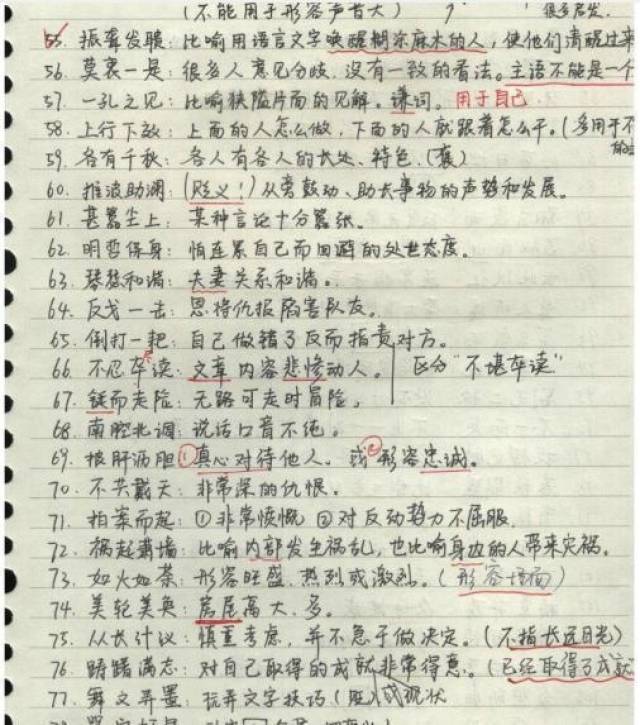 (不能用于形容声音大)
很多启发.
55. 振聋发聩: 比喻用语言文字唤醒糊涂麻木的人, 使他们清醒过来
56. 莫衷一是: 很多人意见分歧, 没有一致的看法。主语不能是一个
57. 一孔之见: 比喻狭隘片面的见解。谦词。用于自己
58. 上行下效: 上面的人怎么做, 下面的人就跟着怎么干。(多用于不
59. 各有千秋: 各人有各人的长处、特色。(褒)
60. 推波助澜: (贬义!) 从旁鼓动、助长事物的声势和发展。
61. 甚嚣尘上: 某种言论十分嚣张。
62. 明哲保身: 怕连累自己而回避的处世态度。
63. 琴瑟和谐: 夫妻关系和谐。
64. 反戈一击: 恩将仇报陷害队友。
65. 倒打一耙: 自己做错了反而指责对方。
66. 不忍卒读: 文章内容悲惨动人。 区分“不堪卒读”
67. 铤而走险: 无路可走时冒险。
68. 南腔北调: 说话口音不纯。
69. 披肝沥胆 ①真心对待他人。或②形容忠诚。
70. 不共戴天: 非常深的仇恨。
71. 拍案而起: ①非常愤慨 ②对反动势力不屈服.
72. 祸起萧墙: 比喻内部发生祸乱, 也比喻身边的人带来灾祸。
73. 如火如荼: 形容旺盛、热烈或激烈。(形容场面)
74. 美轮美奂: 房屋高大、多。
75. 从长计议: 慎重考虑, 并不急于做决定。(不指长远目光)
76. 踌躇满志: 对自己取得的成就非常得意。(已经取得了成就
77. 舞文弄墨: 玩弄文字技巧(贬)或现状